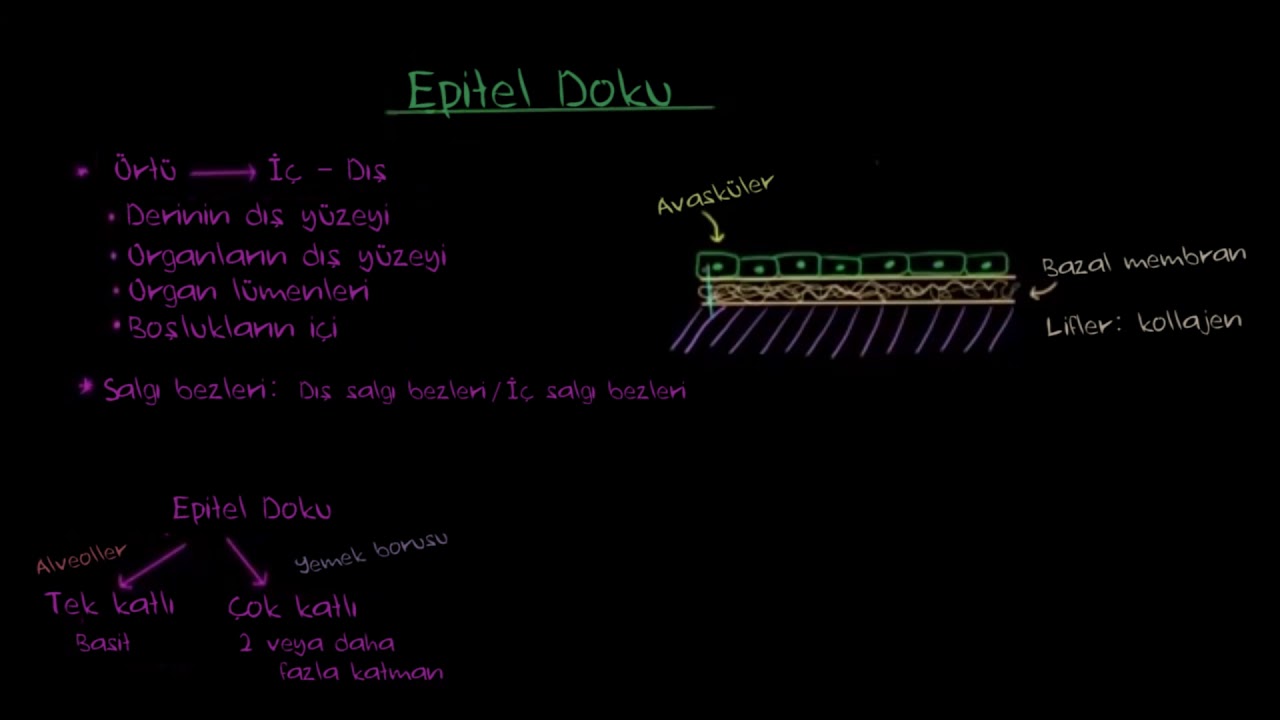 Epitel Doku
Örtü → İç - Dış
• Derinin dış yüzeyi
• Organların dış yüzeyi
• Organ lümenleri
• Boşlukların içi
* Salgı bezleri: Dış salgı bezleri/İç salgı bezleri
Avasküler
Bazal membran
Lifler: kollajen
Epitel Doku
Alveoller
Yemek borusu
Tek katlı
Basit
Çok katlı
2 veya daha
fazla katman